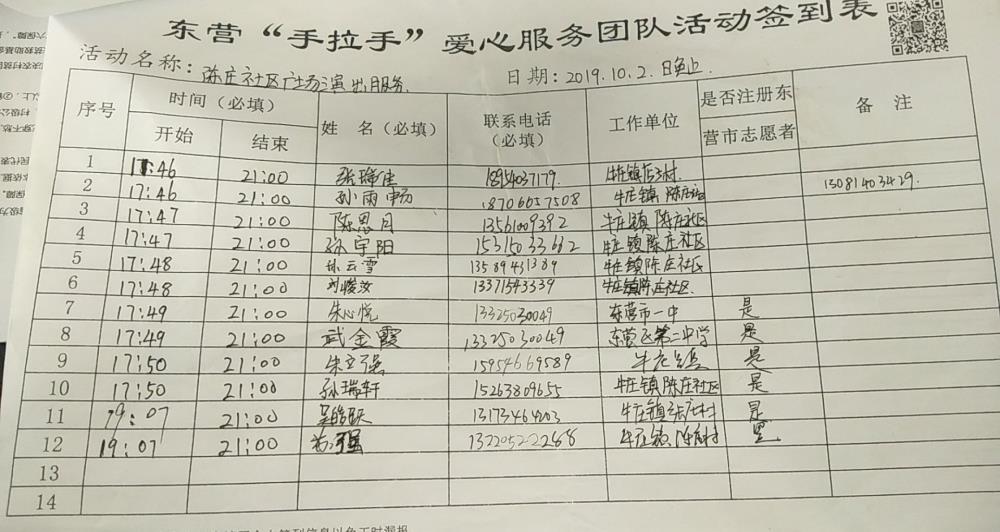 东营“手拉手”爱心服务团队活动签到表
活动名称: 陈庄社区广场演出服务 日期: 2019.10.2. 日晚上
序号 时间（必填） 姓 名（必填） 联系电话（必填） 工作单位 是否注册东营市志愿者 备 注
开始 结束
1 17:46 21:00 18954037179. 牛庄镇
2 17:46 21:00 孙雨畅 18706657508 牛庄镇 陈庄 13081403429.
3 17:47 21:00 陈思月 13561009392 牛庄镇 陈庄社区
4 17:47 21:00 孙宇阳 15315033682 牛庄镇陈庄社区
5 17:48 21:00 孙云雪 13589431389 牛庄镇陈庄社区
6 17:48 21:00 刘俊汝 13371543339 牛庄镇陈庄社区
7 17:49 21:00 朱心悦 13325030049 东营市一中 是
8 17:49 21:00 武金霞 13325030049 东营区第二中学 是
9 17:50 21:00 朱立强 15954669589 是
10 17:50 21:00 孙瑞轩 15263809655 牛庄镇陈庄社区 是
11 19:07 21:00 13173464203 牛庄镇 是
12 19:07 21:00 13220522268 牛庄镇 是
13
14